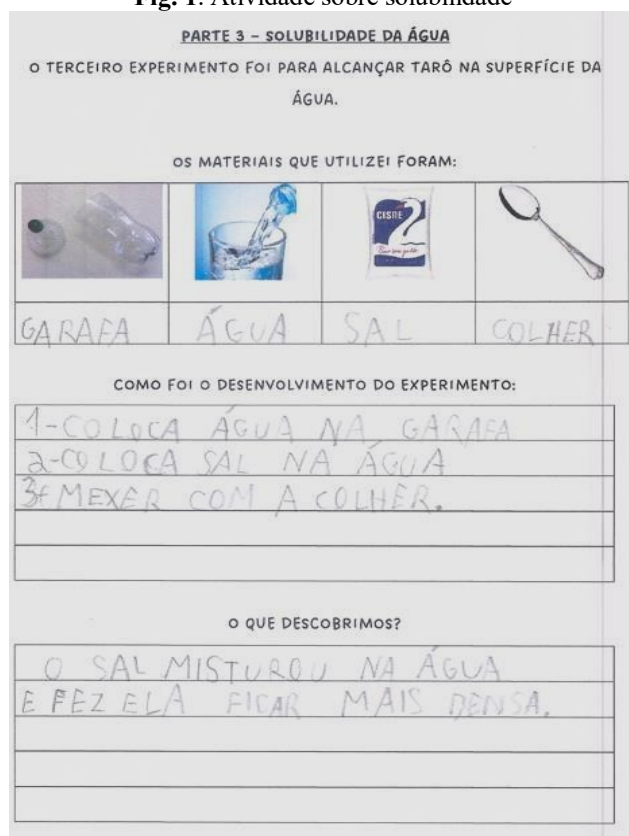 Fig. 1. Atividade sobre solubilidade
PARTE 3 – SOLUBILIDADE DA ÁGUA
O TERCEIRO EXPERIMENTO FOI PARA ALCANÇAR TARÔ NA SUPERFÍCIE DA
ÁGUA.
OS MATERIAIS QUE UTILIZEI FORAM:
CISNE
GARAFA ÁGUA SAL COLHER
COMO FOI O DESENVOLVIMENTO DO EXPERIMENTO:
1-COLOCA ÁGUA NA GARAFA
2-COLOCA SAL NA ÁGUA
3 MEXER COM A COLHER.
O QUE DESCOBRIMOS?
O SAL MISTUROU NA ÁGUA
E FEZ ELA FICAR MAIS DENSA.